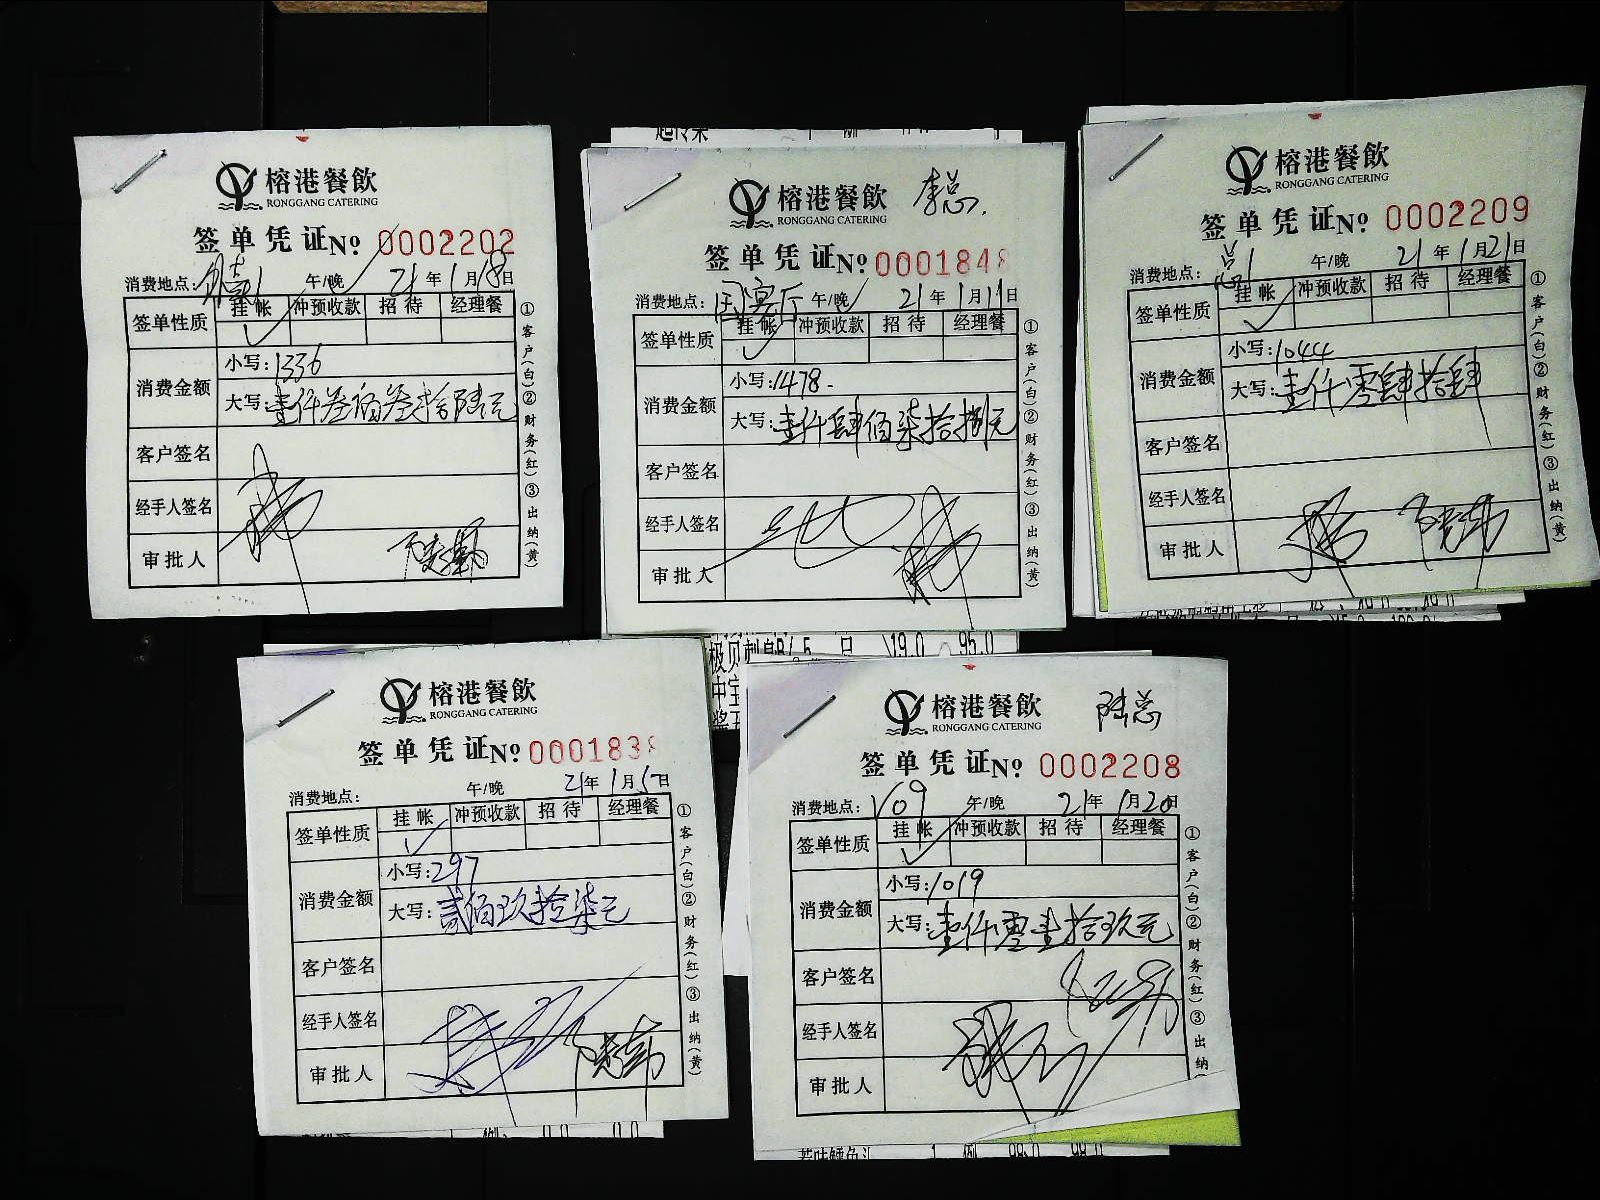 榕港餐飲
RONGGANG CATERING
签单凭证№ 0002202
消费地点： 午/晚 21年1月18日
签单性质 挂帐 冲预收款 招待 经理餐
消费金额 小写：1336
大写：壹仟叁佰叁拾陆元
客户签名
经手人签名
审批人
①客户(白)②财务(红)③出纳(黄)
榕港餐飲 李总.
RONGGANG CATERING
签单凭证№ 0001848
消费地点：国宾厅 午/晚 21年1月11日
签单性质 挂帐 冲预收款 招待 经理餐
消费金额 小写：1478-
大写：壹仟肆佰柒拾捌元
客户签名
经手人签名
审批人
①客户(白)②财务(红)③出纳(黄)
榕港餐飲
RONGGANG CATERING
签单凭证№ 0002209
消费地点： 午/晚 21年1月21日
签单性质 挂帐 冲预收款 招待 经理餐
消费金额 小写：1044
大写：壹仟零肆拾肆
客户签名
经手人签名
审批人
①客户(白)②财务(红)③出纳(黄)
19.0 95.0
榕港餐飲
RONGGANG CATERING
签单凭证№ 000183
消费地点： 午/晚 21年1月5日
签单性质 挂帐 冲预收款 招待 经理餐
消费金额 小写：297
大写：贰佰玖拾柒元
客户签名
经手人签名
审批人
①客户(白)②财务(红)③出纳(黄)
榕港餐飲 陆总
RONGGANG CATERING
签单凭证№ 0002208
消费地点：V09 午/晚 21年1月20日
签单性质 挂帐 冲预收款 招待 经理餐
消费金额 小写：1019
大写：壹仟零壹拾玖元
客户签名
经手人签名
审批人
①客户(白)②财务(红)③出纳(